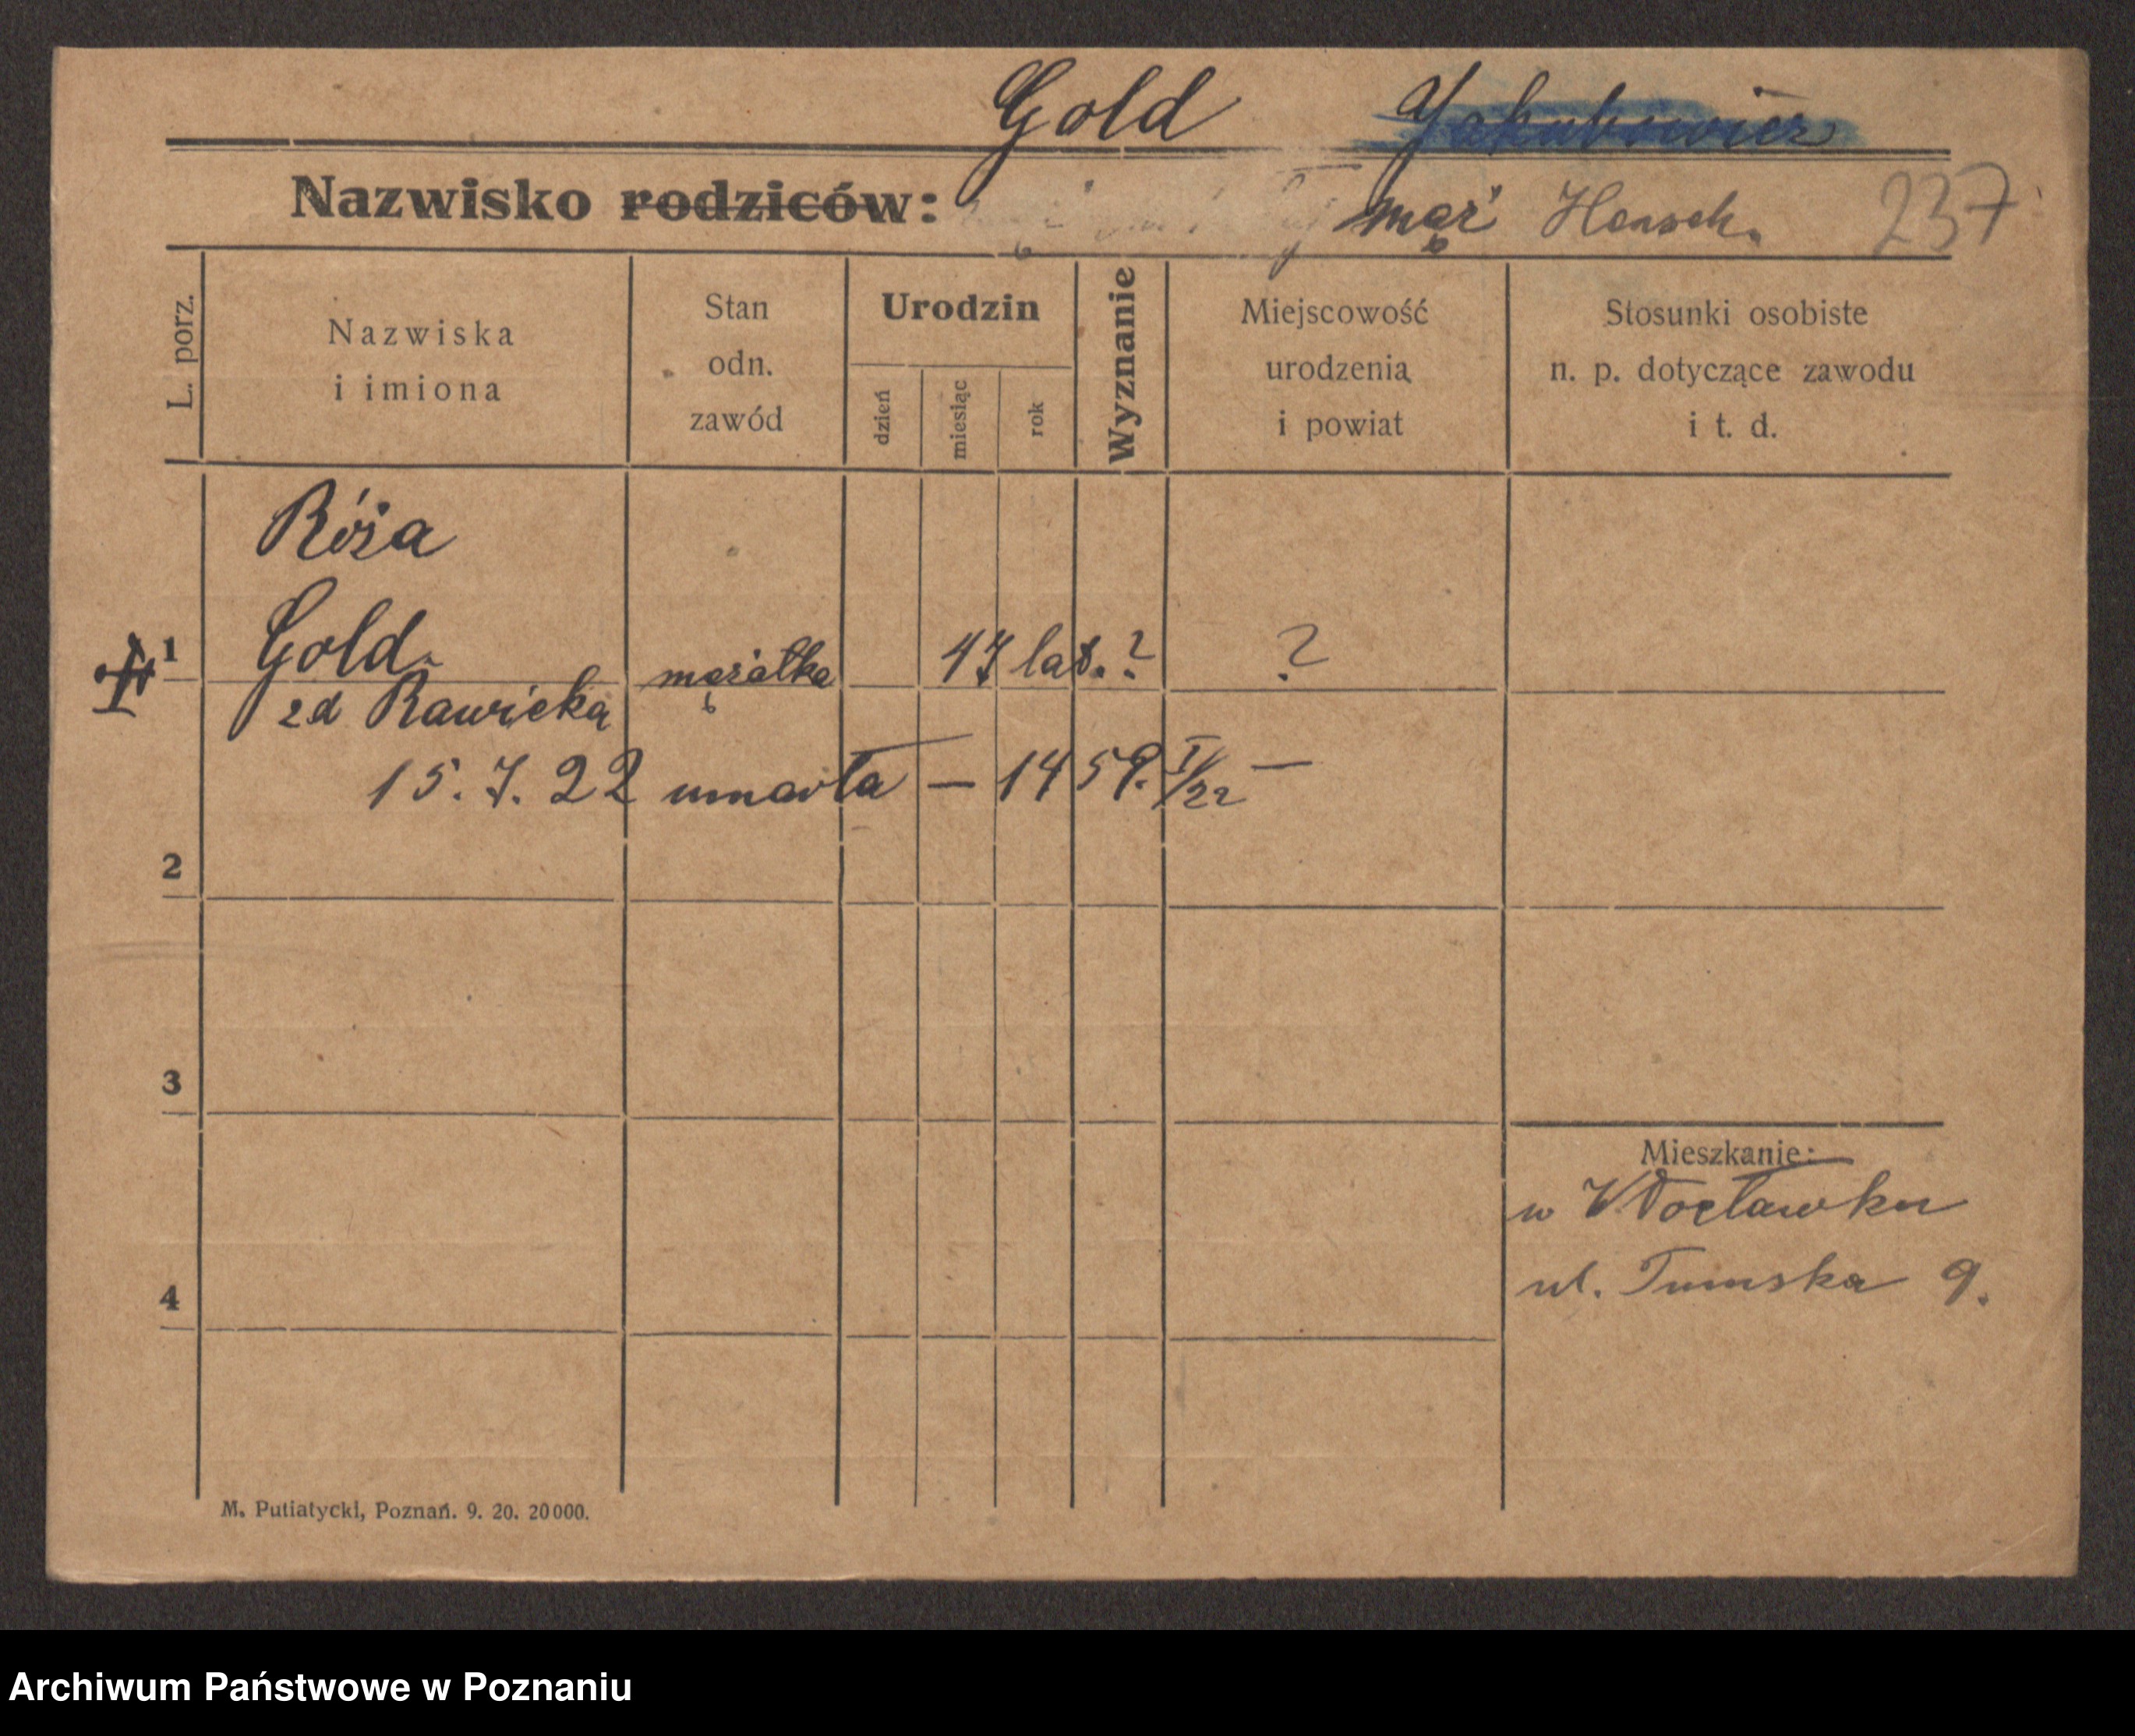 Gold Jakubowicz
Nazwisko rodziców: mąż Hensch. 237
L. porz.
Nazwiska
i imiona
Stan
odn.
zawód
Urodzin
dzień
miesiąc
rok
Wyznanie
Miejscowość
urodzenia
i powiat
Stosunki osobiste
n. p. dotyczące zawodu
i t. d.
Róża
1 Gold mężatka 47 lat. ? ?
zd Rawicka
15. 7. 22 umarła — 1459. I/22 —
2
3
Mieszkanie:
w Włocławku
ul. Tumska 9.
4
M. Putiatycki, Poznań. 9. 20. 20000.
Archiwum Państwowe w Poznaniu